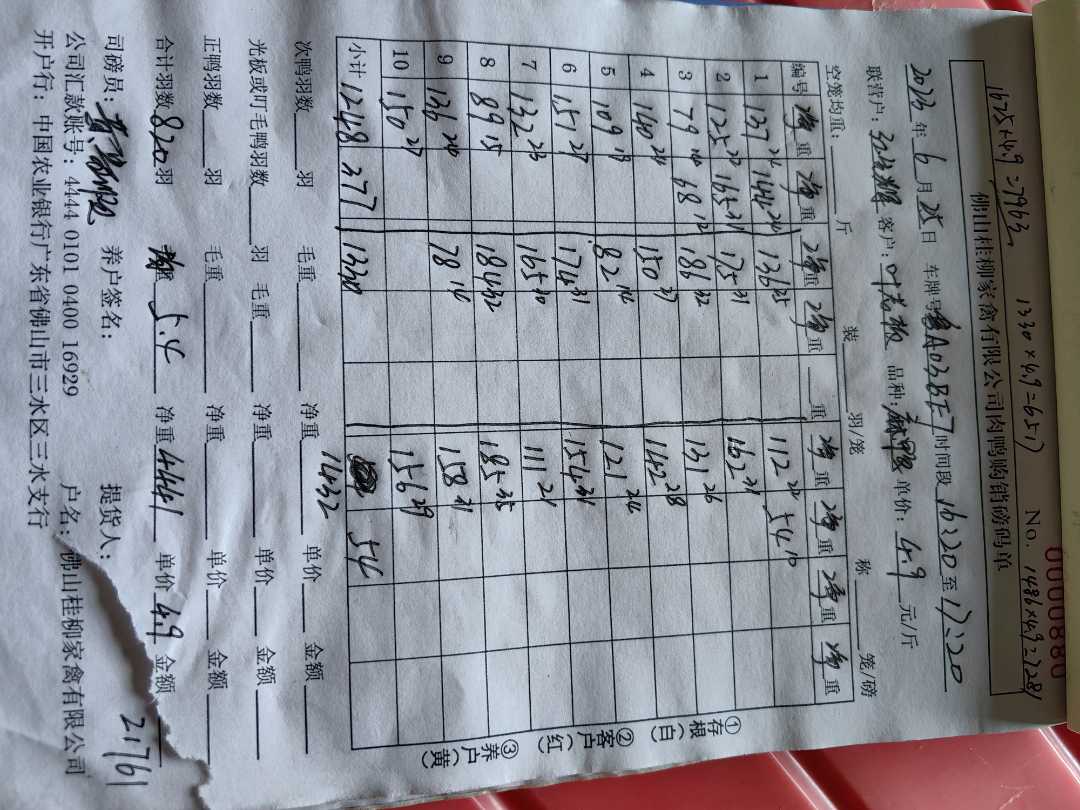 1625×4.9=7963 1330×4.9=6517 1486×4.9=7281
佛山桂柳家禽有限公司肉鸭购销磅码单 No. 0000880
2023年6月25日 车牌号 A03BE7 时间段 16:20 至 17:20
联营户: 客户:叶 品种:麻鸭 单价:4.9 元/斤
空笼均重: 斤 装 羽/笼 称 笼/磅
编号 净重 净重 净重 净重 重 净重 净重 净重 净重
1 137 24 144 26 136 25 112 22 54 10
2 125 22 165 31 175 31 162 31
3 79 14 68 12 186 32 131 26
4 140 24 150 27 142 28
5 109 19 82 14 121 24
6 151 27 174 31 154 31
7 132 23 165 30 111 21
8 89 15 184 32 185 35
9 136 24 78 14 158 31
10 150 27 156 29
小计 1248 377 1330 1432 54
次鸭羽数 羽 毛重 净重 单价 金额
光板或叮毛鸭羽数 羽 毛重 净重 单价 金额
正鸭羽数 羽 毛重 净重 单价 金额
合计羽数 820 羽 重 5.4 净重 4441 单价 4.9 金额 21761
司磅员: 养户签名: 提货人:
公司汇款账号:4444 0101 0400 16929 户名:佛山桂柳家禽有限公司
开户行:中国农业银行广东省佛山市三水区三水支行
①存根(白)
②客户(红)
③养户(黄)